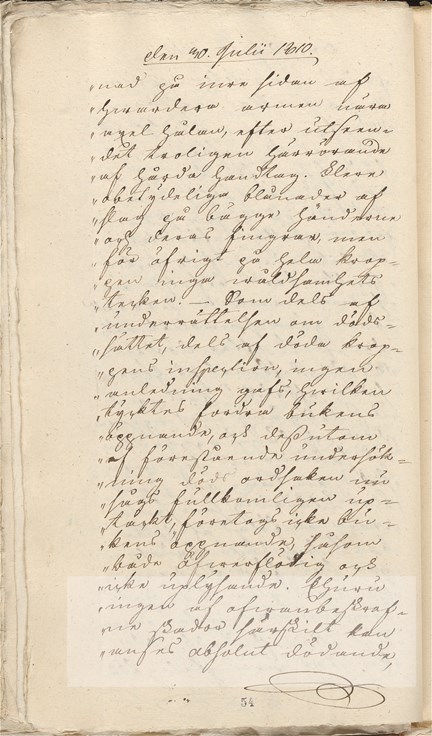 den 30. Julii 1810.
"nad på inre sidan af
"hwardera armen nära
"axel hålan, efter utseen-
"det troligen härrörande
"af hårda handtag. Flere
"obetydeliga blånader af
"slag på bägge händerne
"och deras fingrar, men
"för öfrigt på hela krop-
"pen inga wåldsamhets
"tecken. — Som dels af
"underrättelsen om döds-
"sättet, dels af döda krop-
"pens inspection, ingen
"anledning gafs, hwilken
"tycktes fordra bukens
"öppnande, och dessutom
"af förestående undersök-
"ning döds ordsaken nu
"sågs fullkomligen up-
"täckt, företogs icke bu-
"kens öppnande, såsom
"både öfwerflödig och
"icke uplysande. Ehuru
"ingen af ofwanbeskref-
"ne skador särskilt kan
"anses absolut dödande,
54